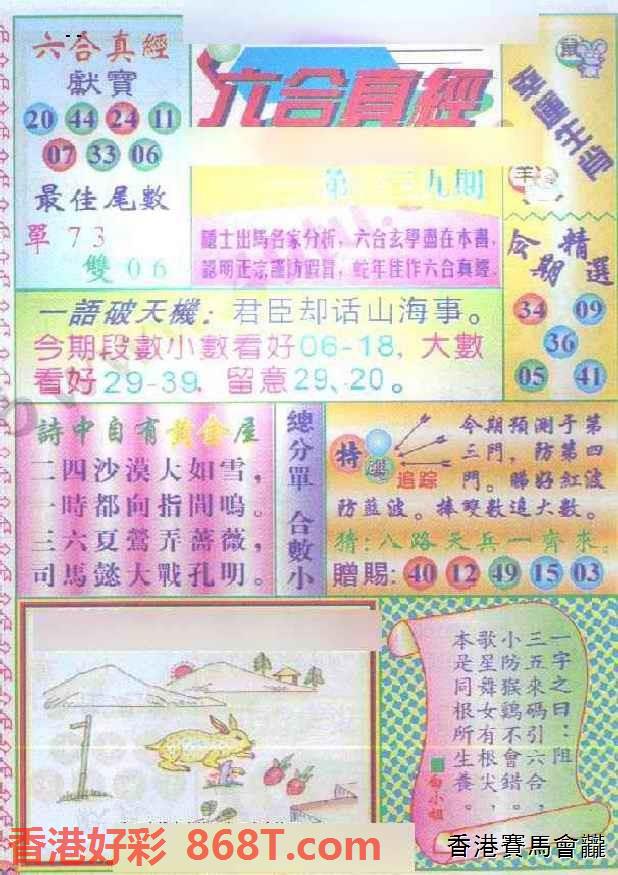 六合真經
獻寶
20 44 24 11
07 33 06
最佳尾數
單 73
雙 06
六合真經
第 三九期
隱士出馬名家分析，六合玄學盡在本書，
認明正宗謹防假冒，蛇年佳作六合真經。
鼠
幸運生肖
羊
今期精選
34 09
36
05 41
一語破天機：君臣却话山海事。
今期段數小數看好06-18，大數
看好29-39，留意29、20。
詩中自有黃金屋
二四沙漠大如雪，
一時都向指間鳴。
三六夏鶯弄薔薇，
司馬懿大戰孔明。
總分單
合數小
特
追踪
今期預測于第
三門，防第四
門。睇好紅波
防藍波。捧雙數追大數。
猜：八路天兵一齊來。
贈賜：40 12 49 15 03
一字之曰：阻
三五來碼引六合，
小防猴鷄不會錯。
歌星舞女有根尖，
本是同根所生養。
白小姐
香港好彩 868T.com
香港賽馬會